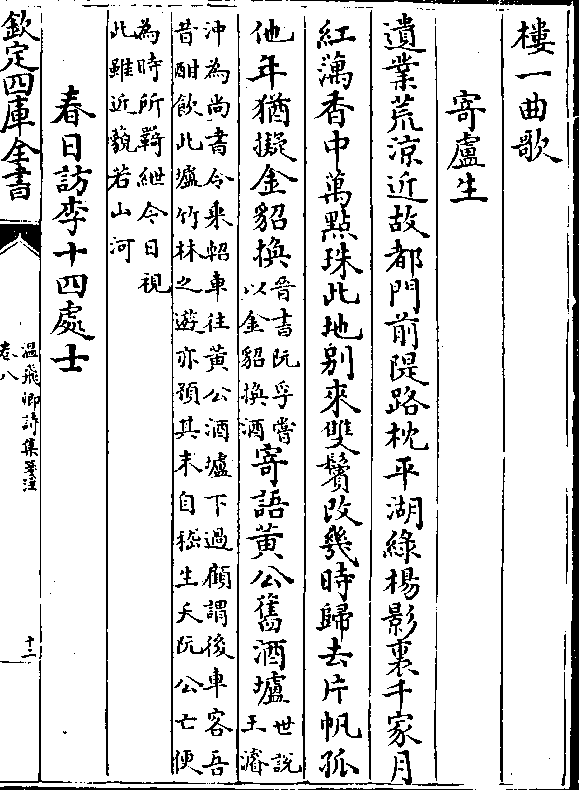 樓一曲歌
寄盧生
遺業荒涼近故都門前隄路枕平湖綠楊影裏千家月
紅藕香中萬點珠此地别來雙鬢改幾時歸去片帆孤
他年猶擬金貂換晉書阮孚嘗以金貂換酒寄語黄公舊酒壚世說王濬
沖為尚書令乘軺車往黄公酒壚下過顧謂後車客吾
昔酣飲此壚竹林之遊亦預其末自嵇生夭阮公亡便
為時所羇紲今日視
此雖近藐若山河
春日訪李十四處士
欽定四庫全書
温飛卿詩集箋注
卷八
十二